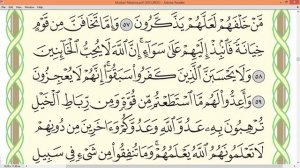 مَّنْ خَلْفَهُمْ لَعَلَّهُمْ يَذَّكَّرُونَ ٥٧ وَإِمَّا تَخَافَنَّ مِن قَوْمٍ
خِيَانَةً فَٱنۢبِذْ إِلَيْهِمْ عَلَىٰ سَوَآءٍ ۚ إِنَّ ٱللَّهَ لَا يُحِبُّ ٱلْخَآئِنِينَ
٥٨ وَلَا يَحْسَبَنَّ ٱلَّذِينَ كَفَرُوا۟ سَبَقُوٓا۟ ۚ إِنَّهُمْ لَا يُعْجِزُونَ
٥٩ وَأَعِدُّوا۟ لَهُم مَّا ٱسْتَطَعْتُم مِّن قُوَّةٍ وَمِن رِّبَاطِ ٱلْخَيْلِ
تُرْهِبُونَ بِهِۦ عَدُوَّ ٱللَّهِ وَعَدُوَّكُمْ وَءَاخَرِينَ مِن دُونِهِمْ
لَا تَعْلَمُونَهُمُ ٱللَّهُ يَعْلَمُهُمْ ۚ وَمَا تُنفِقُوا۟ مِن شَىْءٍ فِى سَبِيلِ